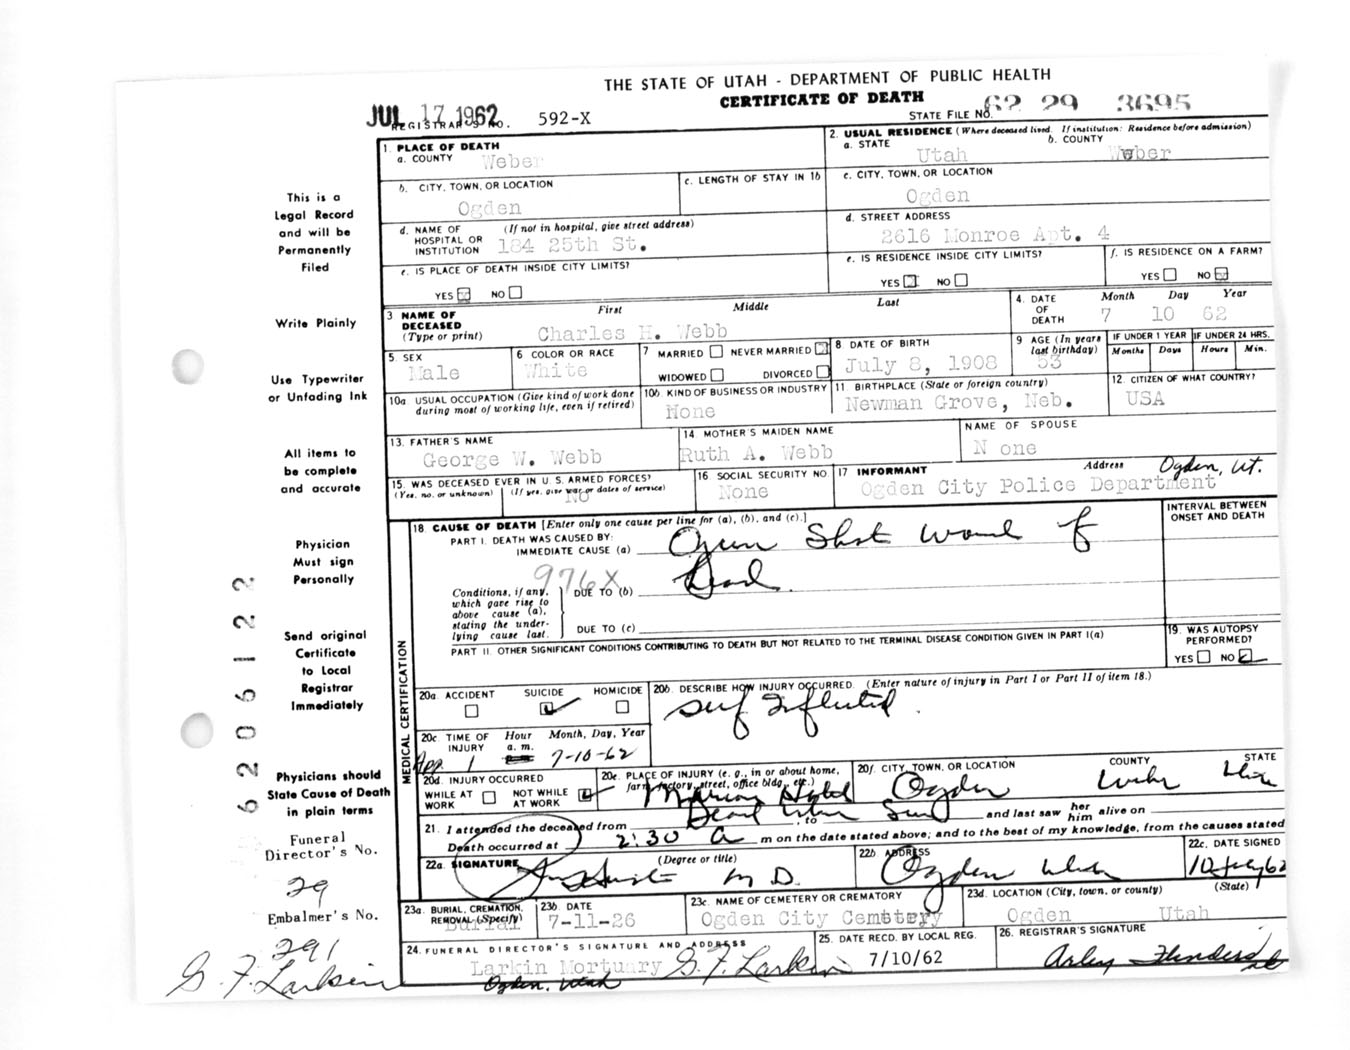 THE STATE OF UTAH - DEPARTMENT OF PUBLIC HEALTH
CERTIFICATE OF DEATH
JUL 17 1962
REGISTRAR'S NO. 592-X
STATE FILE NO. 62 29 3695
This is a
Legal Record
and will be
Permanently
Filed
Write Plainly
Use Typewriter
or Unfading Ink
All items to
be complete
and accurate
Physician
Must sign
Personally
Send original
Certificate
to Local
Registrar
Immediately
Physicians should
State Cause of Death
in plain terms
Funeral
Director's No.
29
Embalmer's No.
291
G. F. Larkin
6206122
1. PLACE OF DEATH
a. COUNTY Weber
2. USUAL RESIDENCE (Where deceased lived. If institution: Residence before admission)
a. STATE Utah b. COUNTY Weber
b. CITY, TOWN, OR LOCATION
Ogden
c. LENGTH OF STAY IN 1b
c. CITY, TOWN, OR LOCATION
Ogden
d. NAME OF HOSPITAL OR INSTITUTION (If not in hospital, give street address)
184 25th St.
d. STREET ADDRESS
2616 Monroe Apt. 4
e. IS PLACE OF DEATH INSIDE CITY LIMITS?
YES NO
e. IS RESIDENCE INSIDE CITY LIMITS?
YES NO
f. IS RESIDENCE ON A FARM?
YES NO
3 NAME OF DECEASED (Type or print) First Middle Last
Charles H. Webb
4. DATE OF DEATH Month Day Year
7 10 62
5. SEX
Male
6 COLOR OR RACE
White
7 MARRIED NEVER MARRIED
WIDOWED DIVORCED
8 DATE OF BIRTH
July 8, 1908
9 AGE (In years last birthday)
53
IF UNDER 1 YEAR
Months Days
IF UNDER 24 HRS.
Hours Min.
10a. USUAL OCCUPATION (Give kind of work done during most of working life, even if retired)
10b. KIND OF BUSINESS OR INDUSTRY
None
11. BIRTHPLACE (State or foreign country)
Newman Grove, Neb.
12. CITIZEN OF WHAT COUNTRY?
USA
13. FATHER'S NAME
George W. Webb
14. MOTHER'S MAIDEN NAME
Ruth A. Webb
NAME OF SPOUSE
N one
15. WAS DECEASED EVER IN U.S. ARMED FORCES?
(Yes, no, or unknown) (If yes, give war or dates of service)
No
16. SOCIAL SECURITY NO.
None
17 INFORMANT Address
Ogden City Police Department Ogden, Ut.
MEDICAL CERTIFICATION
18. CAUSE OF DEATH [Enter only one cause per line for (a), (b), and (c).]
INTERVAL BETWEEN ONSET AND DEATH
PART I. DEATH WAS CAUSED BY:
IMMEDIATE CAUSE (a) Gun Shot wound of
Head.
976X
Conditions, if any, which gave rise to above cause (a), stating the underlying cause last.
DUE TO (b)
DUE TO (c)
PART II. OTHER SIGNIFICANT CONDITIONS CONTRIBUTING TO DEATH BUT NOT RELATED TO THE TERMINAL DISEASE CONDITION GIVEN IN PART I(a)
19. WAS AUTOPSY PERFORMED?
YES NO
20a. ACCIDENT SUICIDE HOMICIDE
20b. DESCRIBE HOW INJURY OCCURRED. (Enter nature of injury in Part I or Part II of item 18.)
Self Inflicted.
20c TIME OF INJURY Hour a. m. Month, Day, Year
App. 1 7-10-62
20d. INJURY OCCURRED
WHILE AT WORK NOT WHILE AT WORK
20e. PLACE OF INJURY (e. g., in or about home, farm, factory, street, office bldg., etc.)
Marion Hotel
20f. CITY, TOWN, OR LOCATION COUNTY STATE
Ogden Weber Utah
21. I attended the deceased from Dead when Seen, to and last saw her him alive on
Death occurred at 2:30 a m on the date stated above; and to the best of my knowledge, from the causes stated
22a. SIGNATURE (Degree or title)
M D.
22b. ADDRESS
Ogden Utah
22c. DATE SIGNED
10 July 62
23a. BURIAL, CREMATION, REMOVAL (Specify)
Burial
23b DATE
7-11-26
23c. NAME OF CEMETERY OR CREMATORY
Ogden City Cemetery
23d. LOCATION (City, town, or county) (State)
Ogden Utah
24. FUNERAL DIRECTOR'S SIGNATURE AND ADDRESS
Larkin Mortuary G. F. Larkin
Ogden, Utah
25. DATE RECD. BY LOCAL REG.
7/10/62
26. REGISTRAR'S SIGNATURE